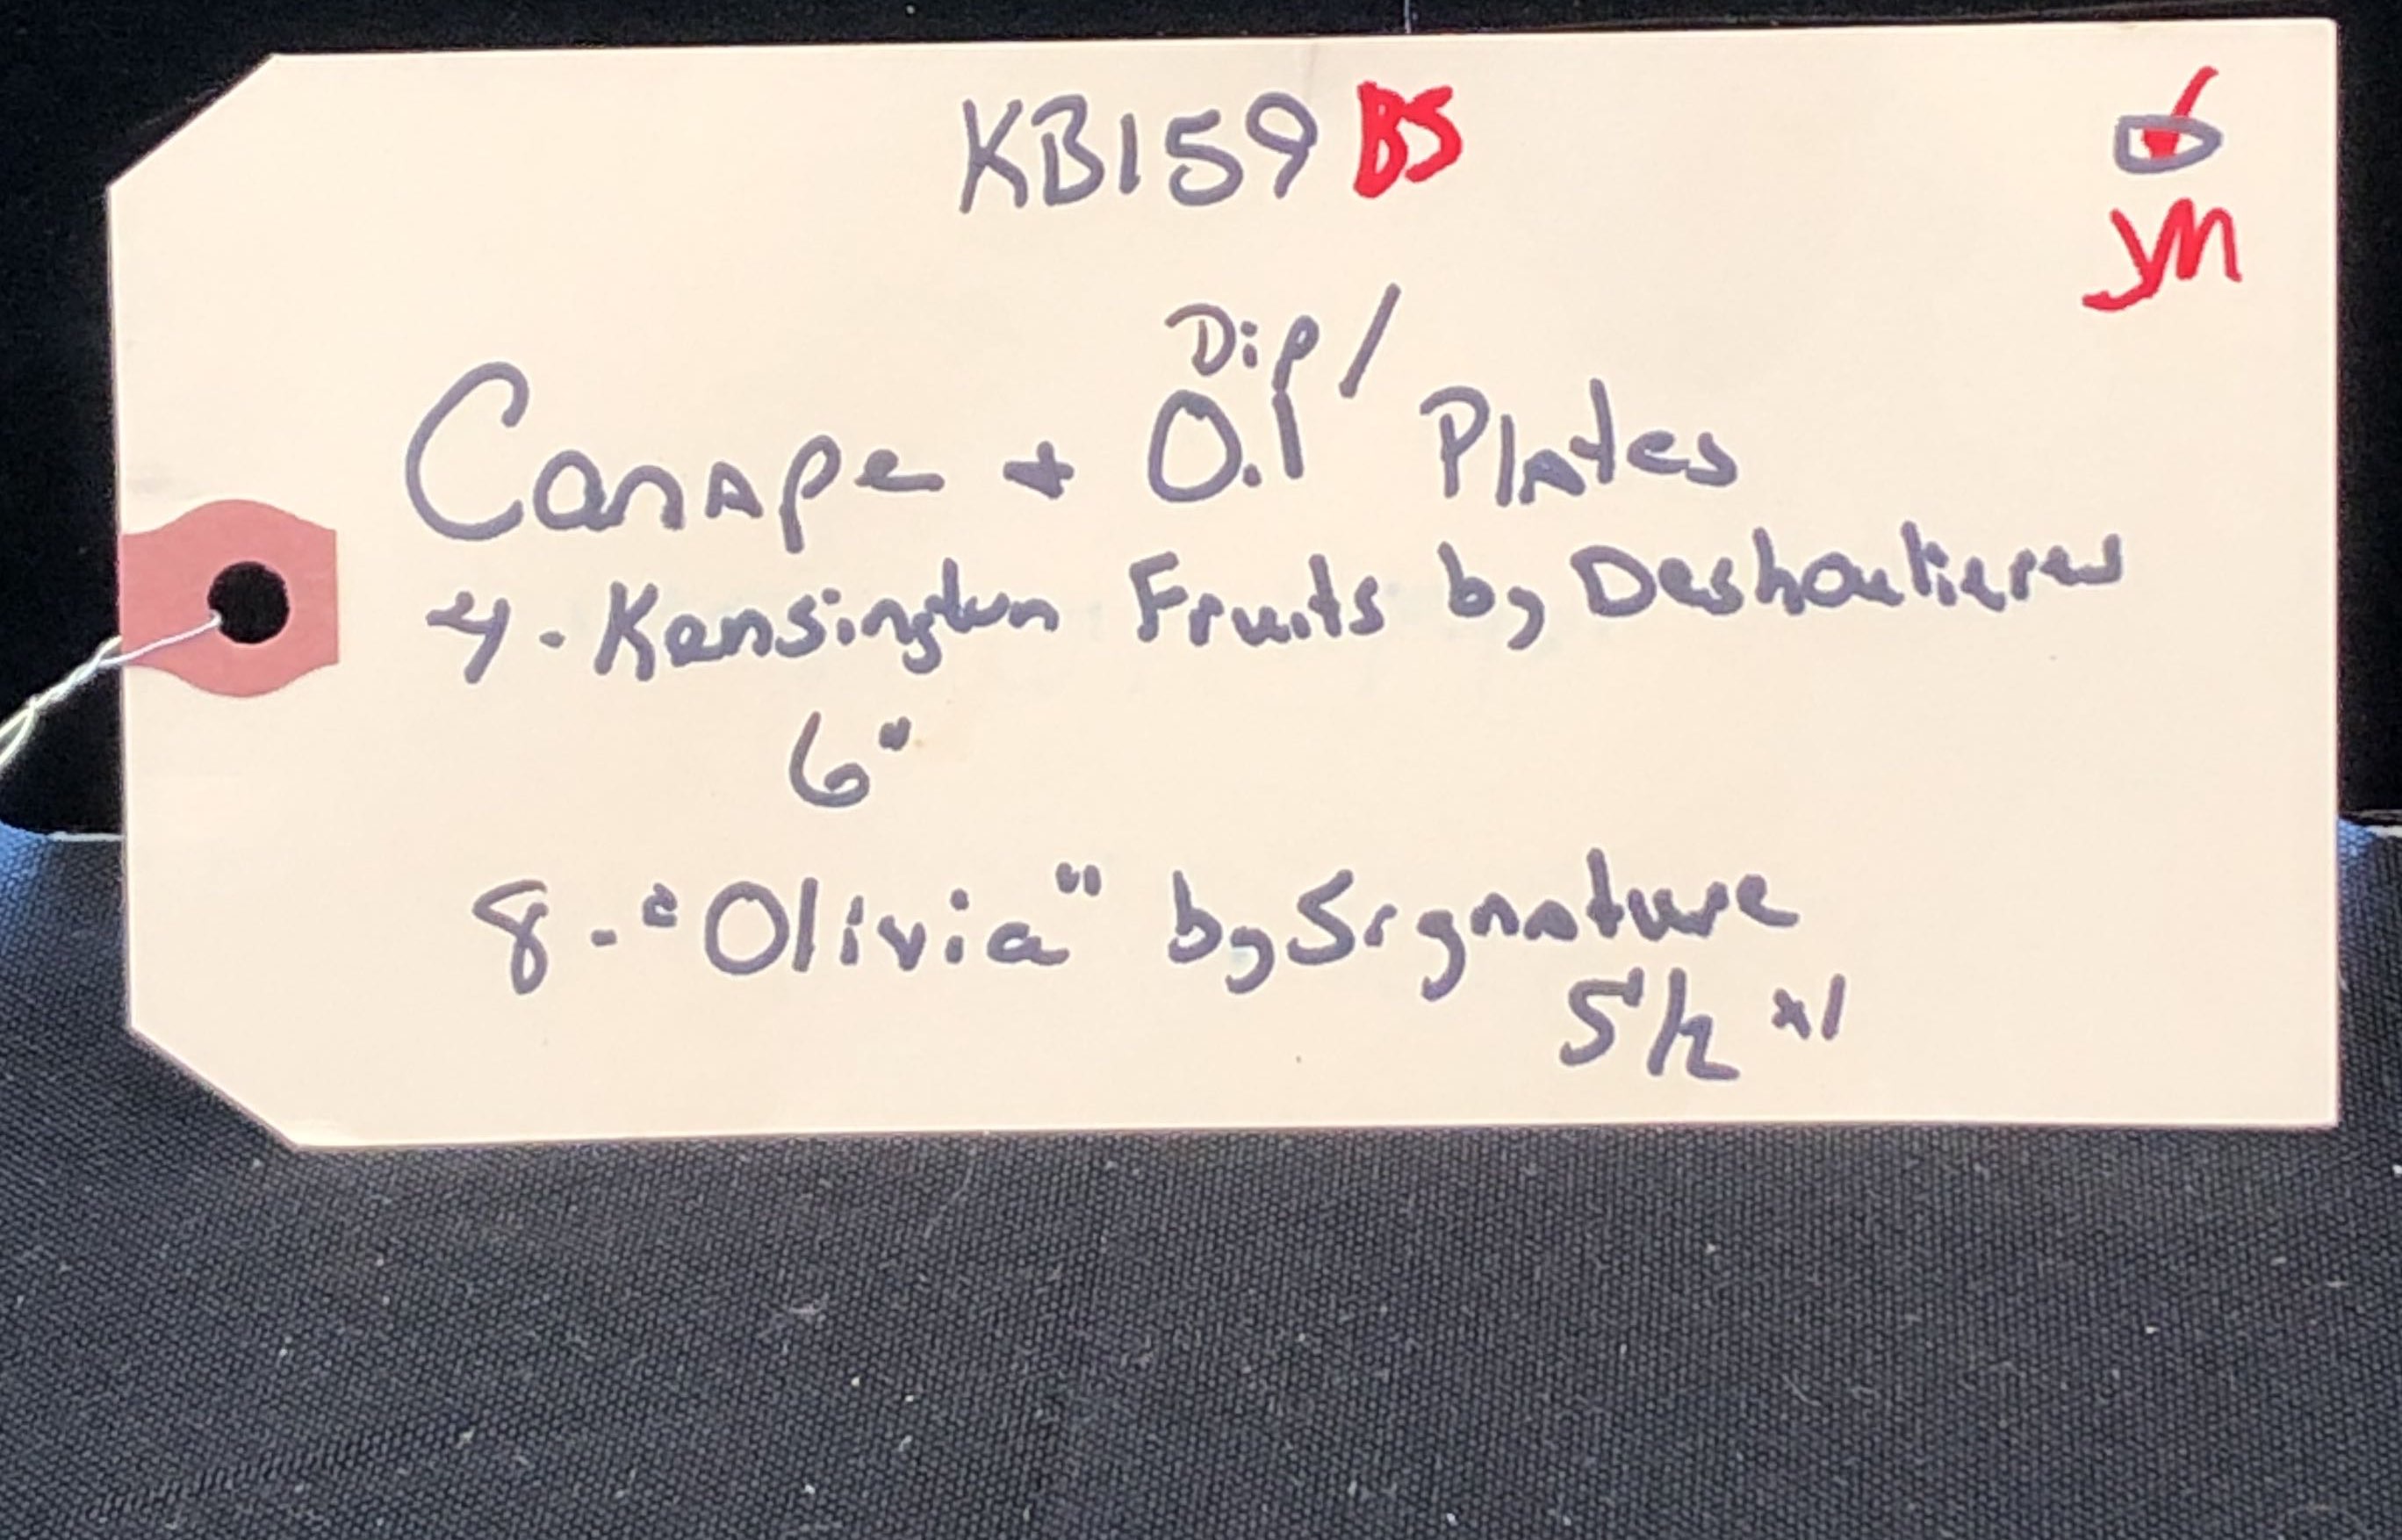 KB159 BS
YM
Dip/
Canape + Oil Plates
4 - Kensington Fruits by Deshoulieres
6"
8 - "Olivia" by Signature
5 1/2 "